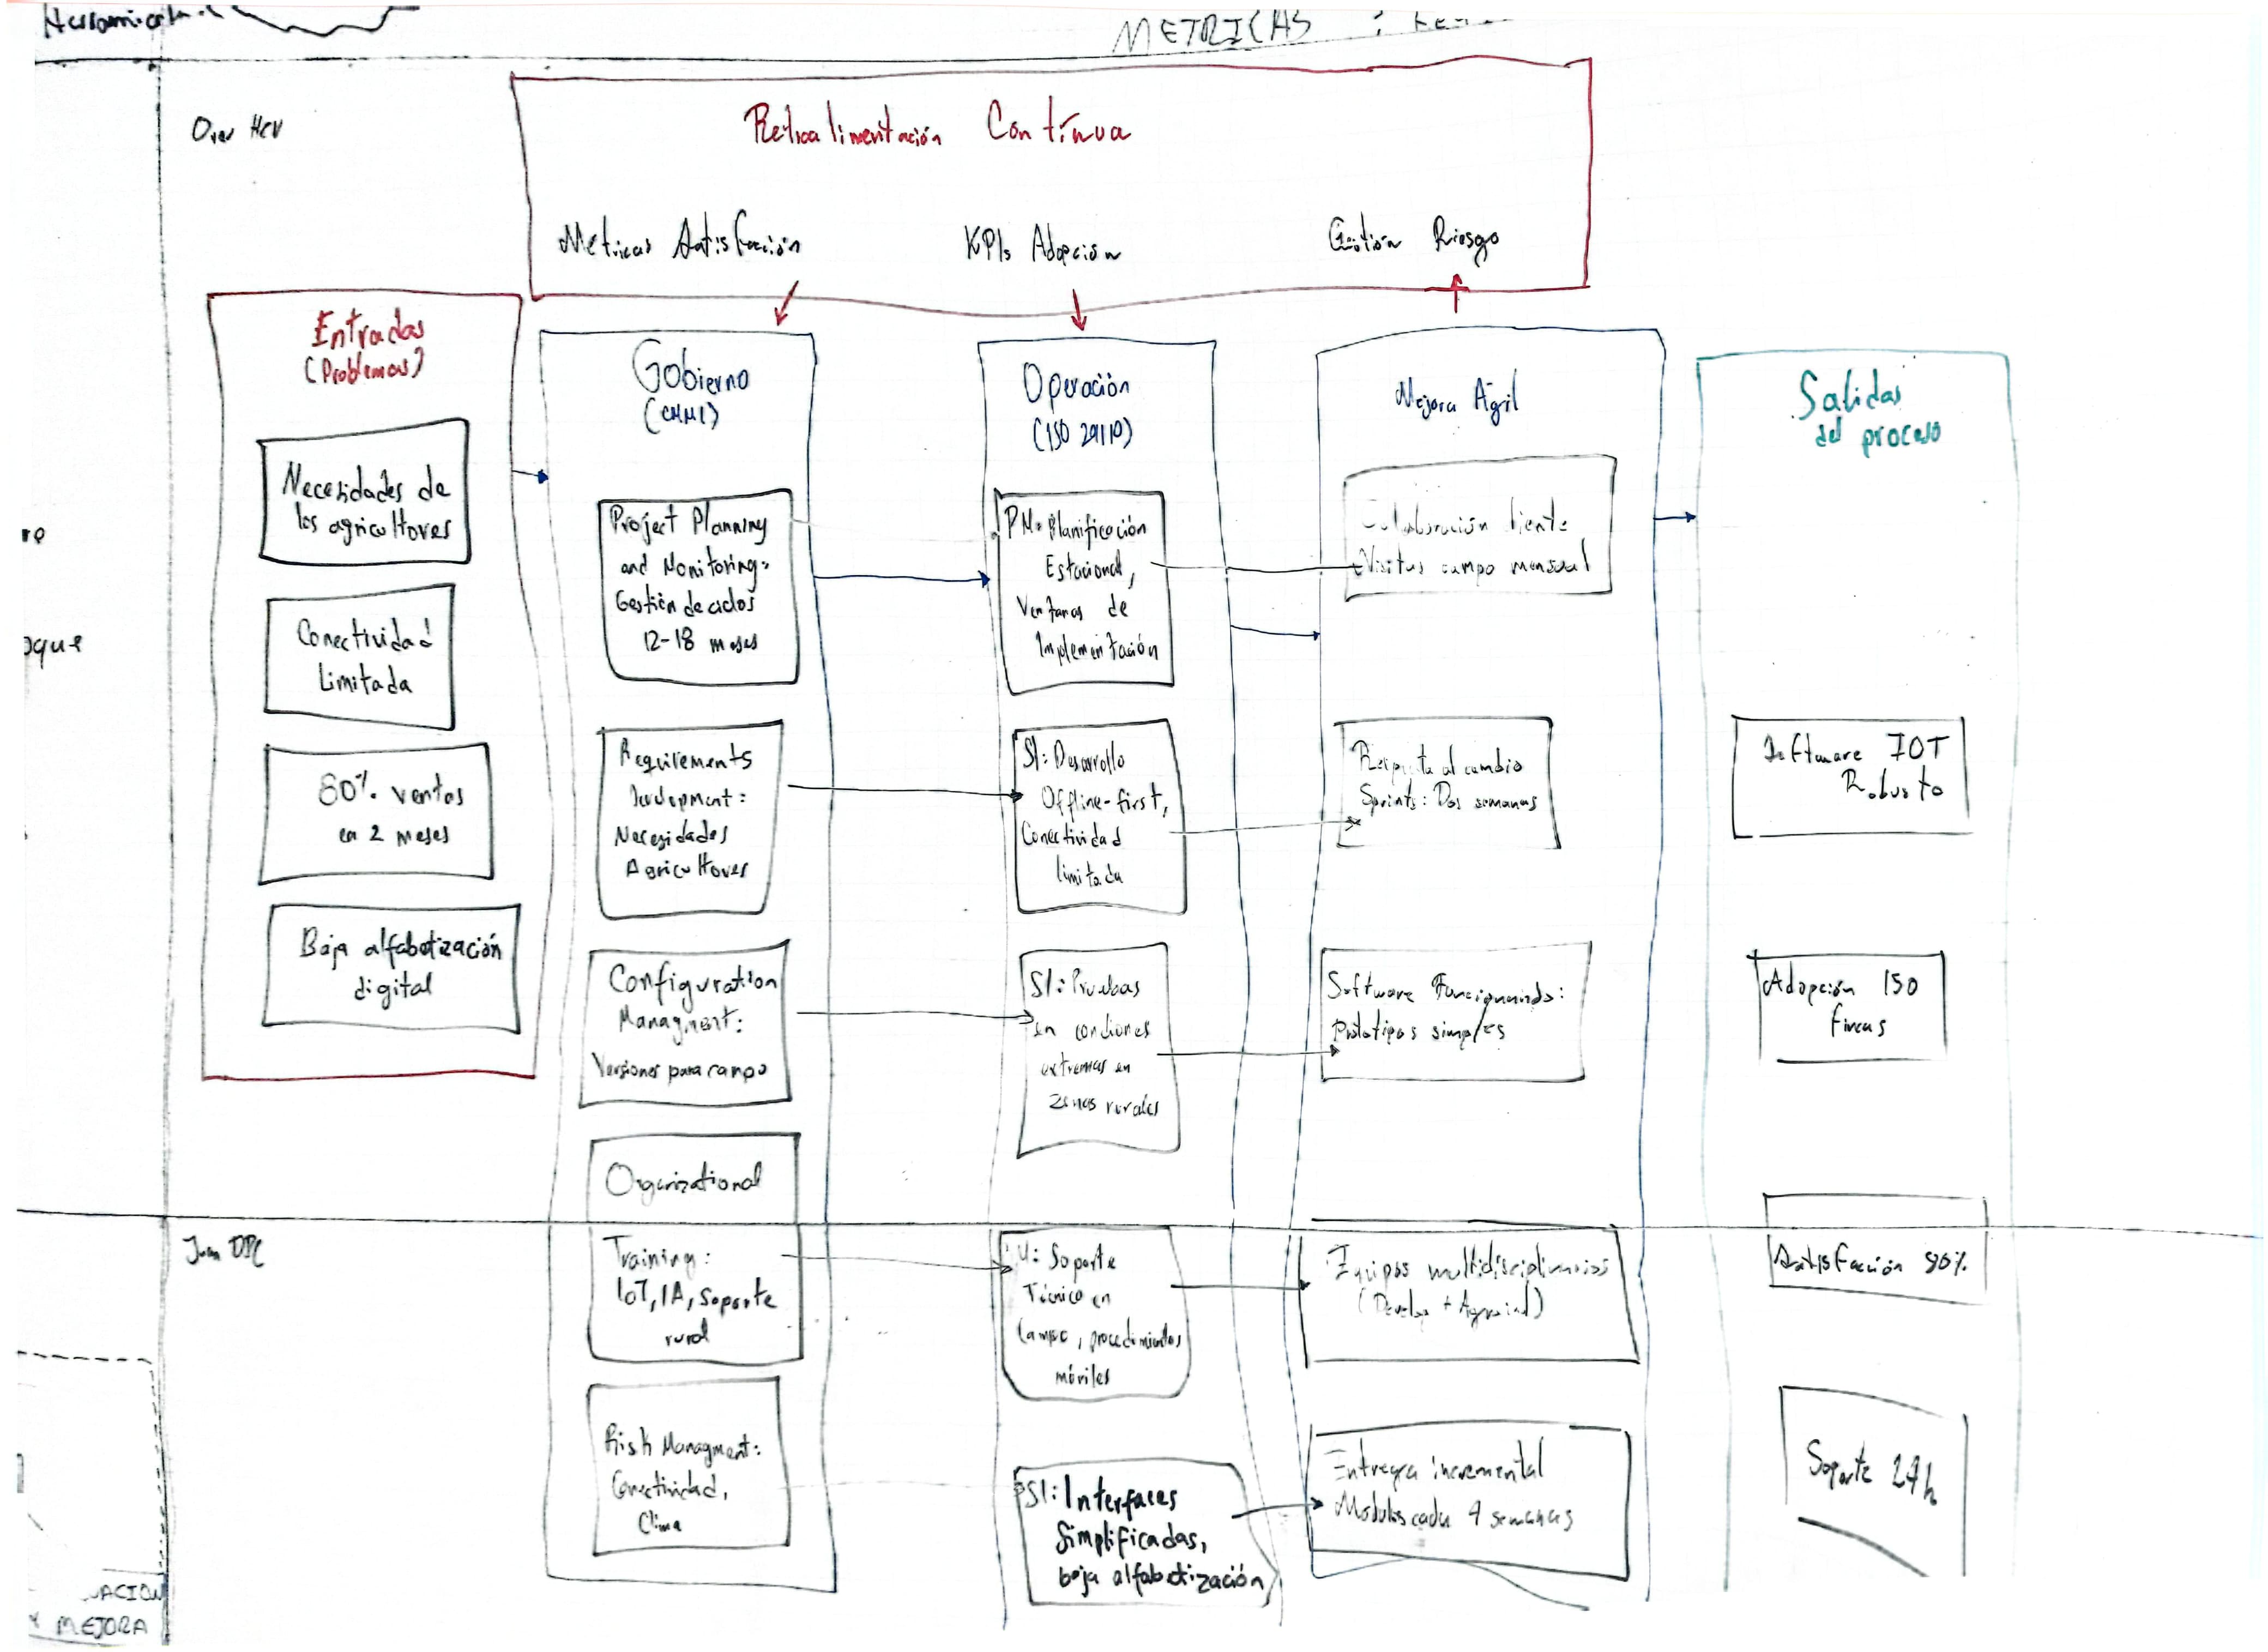 METRICAS
Retroalimentación Contínua
Métricas Satisfacción
KPIs Adopción
Gestión Riesgo
Entradas
(Problemas)
Necesidades de
los agricultores
Conectividad
Limitada
80% ventas
en 2 meses
Baja alfabetización
digital
Gobierno
(CMMI)
Project Planning
and Monitoring:
Gestión de ciclos
12-18 meses
Requirements
Development:
Necesidades
Agricultores
Configuration
Managment:
Versiones para campo
Organizational
Training:
IoT, IA, Soporte
rural
Risk Managment:
Conectividad,
Clima
Operación
(ISO 29110)
PM: Planificación
Estacional,
Ventanas de
Implementación
SI: Desarrollo
Offline-first,
Conectividad
limitada
SI: Pruebas
en condiones
extremas en
zonas rurales
Soporte
Técnico en
Campo, procedimientos
móviles
SI: Interfaces
Simplificadas,
baja alfabetización
Mejora Ágil
Colaboración cliente
Visitas campo mensual
Respuesta al cambio
Sprints: Dos semanas
Software Funcionando:
Prototipos simples
Equipos multidisciplinarios
Entrega incremental
Modulos cada 4 semanas
Salidas
del proceso
Software IOT
Robusto
Adopción 150
fincas
Satisfacción
Soporte 24h
Juan
ACION
Y MEJORA